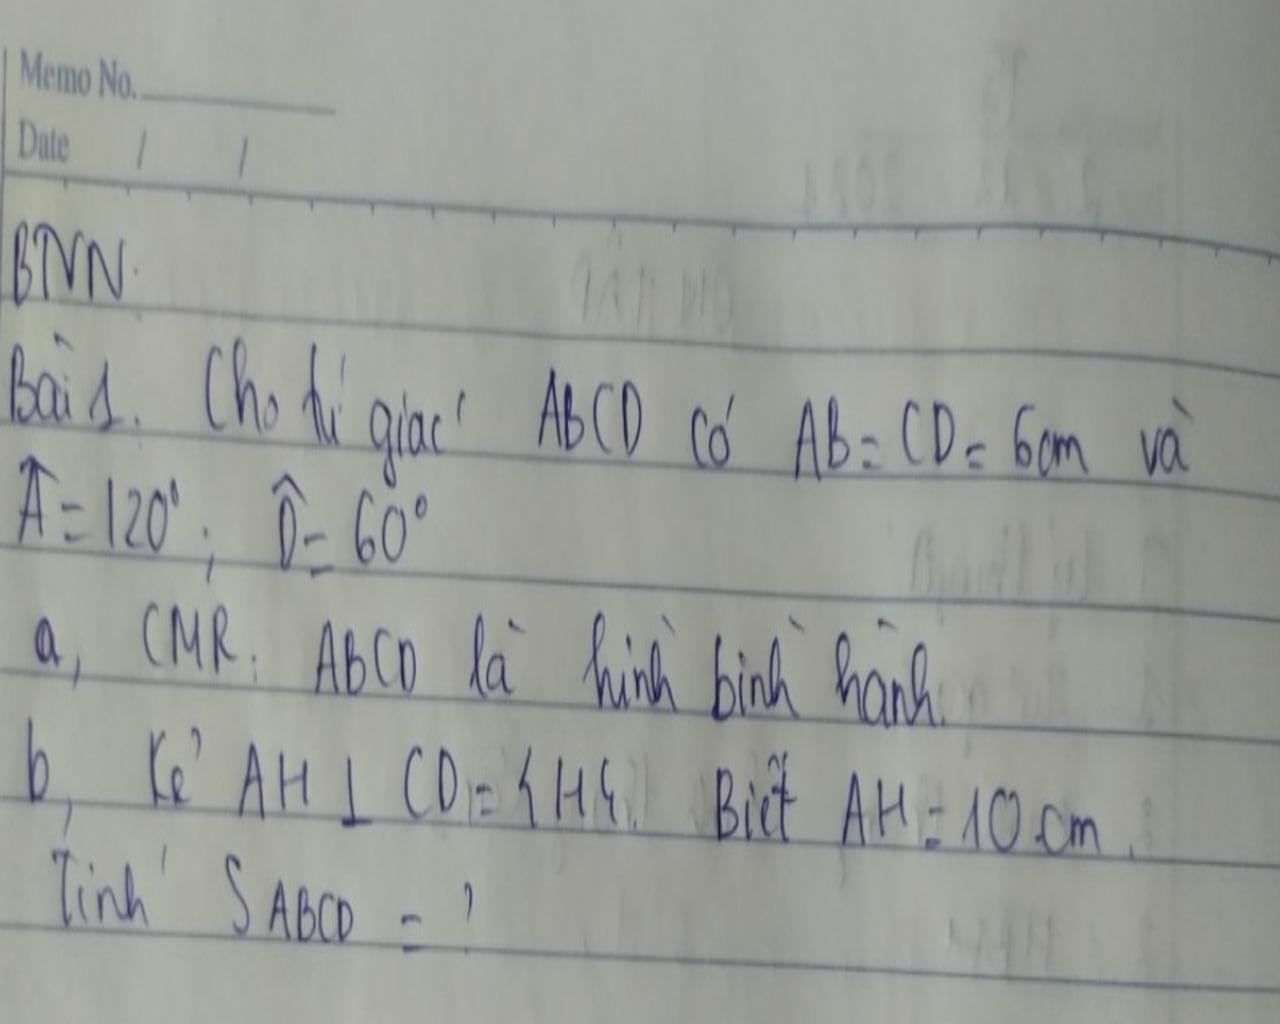 Memo No.
Date / /
BTVN.
Bài 1. Cho tứ giác ABCD có AB = CD = 6cm và
Â = 120°; D̂ = 60°
a, CMR: ABCD là hình bình hành.
b, Kẻ AH ⊥ CD = {H}. Biết AH = 10 cm.
Tính S ABCD = ?